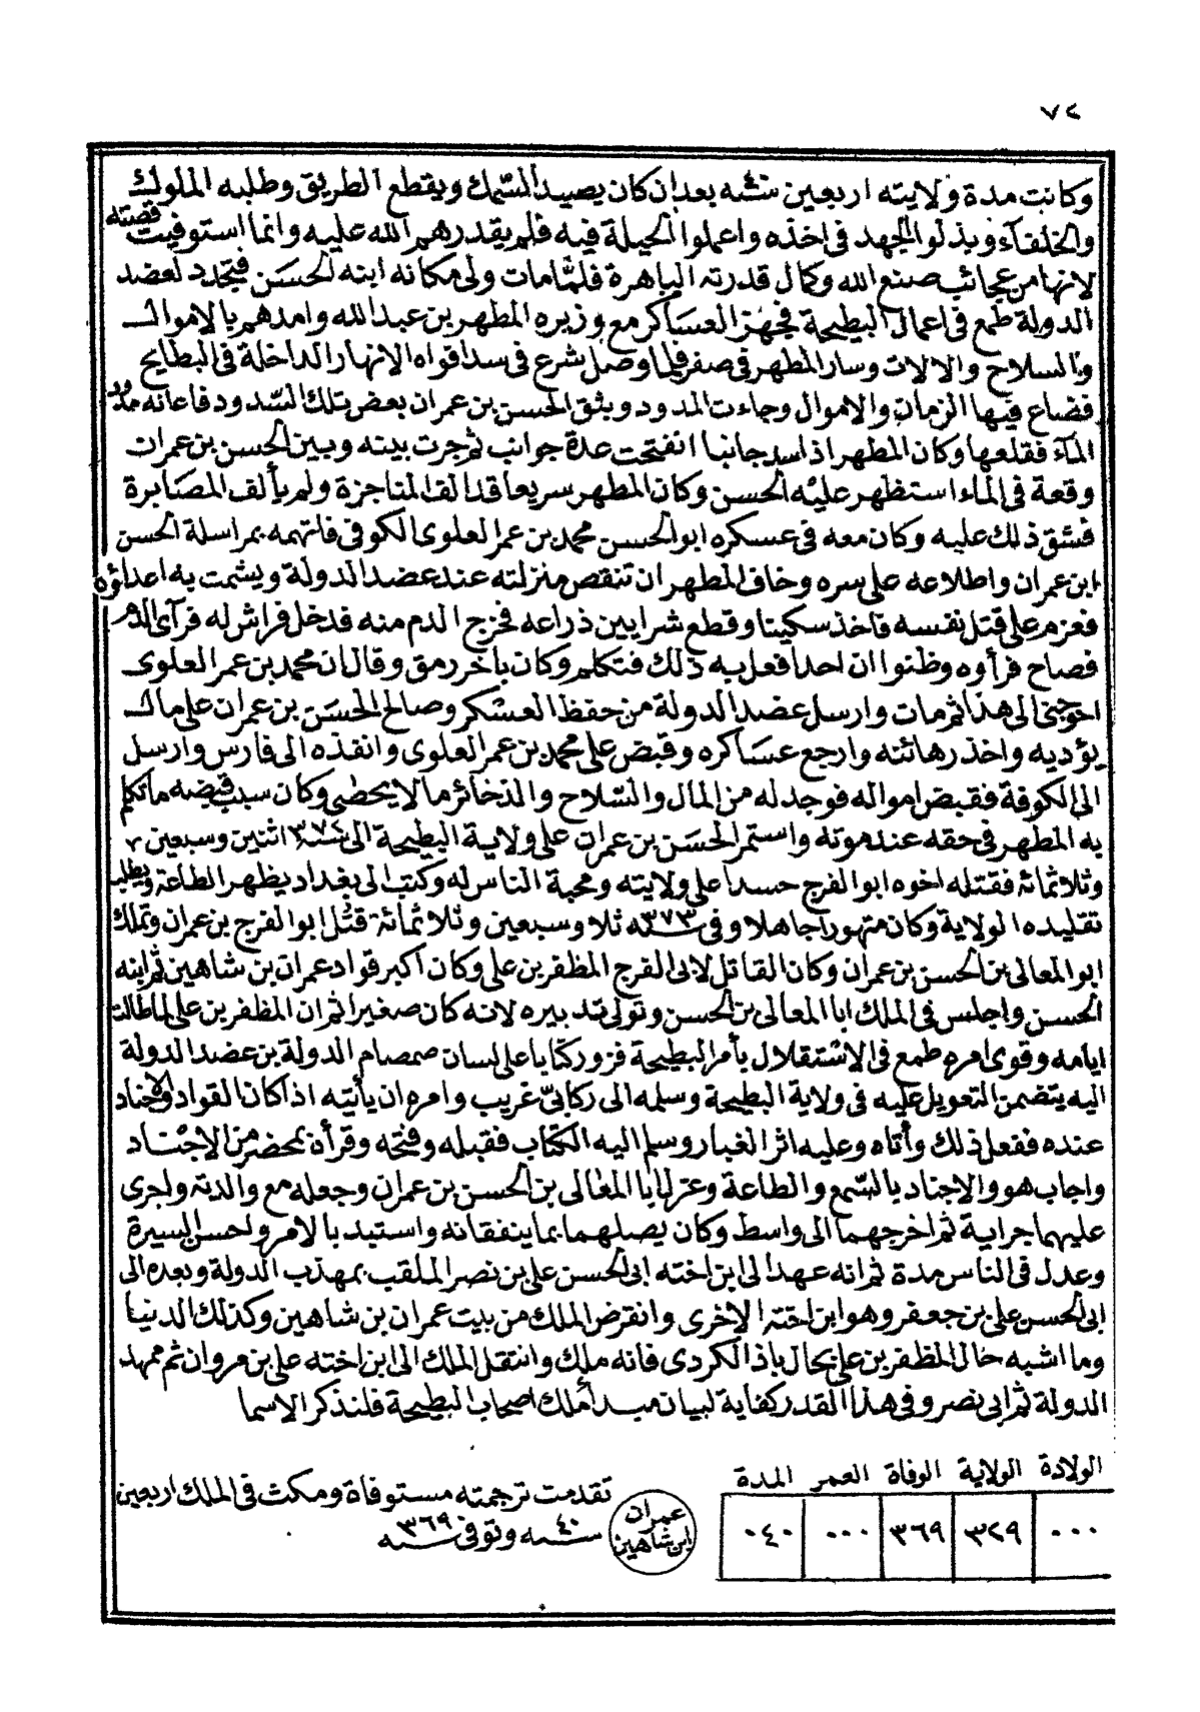 ٧٢
وكانت مدة ولايته اربعين سنة بعد ان كان يصيد السمك ويقطع الطريق وطلبه الملوك
والخلفآء وبذلوا الجهد فى اخذه واعملوا الحيلة فيه فلم يقدرهم الله عليه وانما استوفيت قصته
لانها من عجائب صنع الله وكمال قدرته الباهرة فلما مات ولى مكانه ابنه الحسن فتجدد لعضد
الدولة طمع فى اعمال البطيحة فجهز العساكر مع وزيره المطهر بن عبد الله وامدهم بالاموال
والسلاح والالات وسار المطهر فى صفر فلما وصل شرع فى سد افواه الانهار الداخلة فى البطايح
فضاع فيها الزمان والاموال وجاءت المدود وبثق الحسن بن عمران بعض تلك السدود فاعانه مدد
المآء فقلعها وكان المطهر اذا سد جانبا انفتحت عدة جوانب ثم جرت بينه وبين الحسن بن عمران
وقعة فى الماء استظهر عليه الحسن وكان المطهر سريعا قد الف المناجزة ولم يألف المصابرة
فشق ذلك عليه وكان معه فى عسكره ابو الحسن محمد بن عمر العلوى الكوفى فاتهمه بمراسلة الحسن
ابن عمران واطلاعه على سره وخاف المطهر ان تنقص منزلته عند عضد الدولة ويشمت به اعداؤه
فعزم على قتل نفسه فاخذ سكينا وقطع شرايين ذراعه فخرج الدم منه فدخل فراش له فرآى الدم
فصاح فرأوه وظنوا ان احدا فعل به ذلك فتكلم وكان بآخر رمق وقال ان محمد بن عمر العلوى
احوجنى الى هذا ثم مات وارسل عضد الدولة من حفظ العسكر وصالح الحسن بن عمران على مال
يؤديه واخذ رهائنه وارجع عساكره وقبض على محمد بن عمر العلوى وانفذه الى فارس وارسل
الى الكوفة فقبض امواله فوجد له من المال والسلاح والذخائر ما لا يحصى وكان سبب قبضه ما تكلم
به المطهر فى حقه عند موته واستمر الحسن بن عمران على ولاية البطيحة الى سنة ٣٧٢ اثنين وسبعين
وثلاثمائة فقتله اخوه ابو الفرج حسدا على ولايته ومحبة الناس له وكتب الى بغداد يظهر الطاعة ويطلب
تقليده الولاية وكان متهورا جاهلا وفى سنة ٣٧٣ ثلا وسبعين وثلاثمائة قتل ابو الفرج بن عمران وتملك
ابو المعالى بن الحسن بن عمران وكان القاتل لابى الفرج المظفر بن على وكان أكبر قواد عمران بن شاهين ثم ابنه
الحسن واجلس فى الملك ابا المعالى بن الحسن وتولى تدبيره لانه كان صغيرا ثم ان المظفر بن على لما طالت
ايامه وقوى امره طمع فى الاستقلال بأمر البطيحة فزور كتابا على لسان صمصام الدولة بن عضد الدولة
اليه يتضمن التعويل عليه فى ولاية البطيحة وسلمه الى ركابى غريب وامره ان يأتيه اذا كان القواد والاجناد
عنده ففعل ذلك وأتاه وعليه اثر الغبار وسلم اليه الكتاب فقبله وفتحه وقرأه بمحضر من الاجناد
واجاب هو والاجناد بالسمع والطاعة وعزل ابا المعالى بن الحسن بن عمران وجعله مع والدته واجرى
عليهما جراية ثم اخرجهما الى واسط وكان يصلهما بما ينفقانه واستبد بالامر واحسن السيرة
وعدل فى الناس مدة ثم انه عهد الى ابن اخته ابى الحسن على بن نصر الملقب بمهذب الدولة وبعده الى
ابى الحسن على بن جعفر وهو ابن اخته الاخرى وانقرض الملك من بيت عمران بن شاهين وكذلك الدنيا
وما اشبه حال المظفر بن على بحال باذ الكردى فانه ملك وانتقل الملك الى ابن اخته على بن مروان ثم ممهد
الدولة ثم ابى نصر وفى هذا القدر كفاية لبيان مبدأ ملك اصحاب البطيحة فلنذكر الاسما
الولادة الولاية الوفاة العمر المدة
٠٠٠ ٣٢٩ ٣٦٩ ٠٠٠ ٠٤٠
عمران ابن شاهين
تقدمت ترجمته مستوفاة ومكث فى الملك اربعين
٤٠ سنه وتوفى سنه ٣٦٩